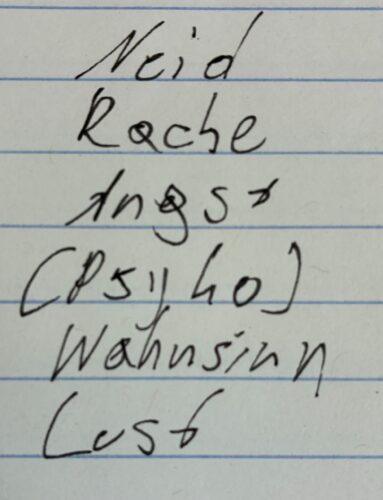 Neid
Rache
Angst
(Psyho)
Wahnsinn
Lust